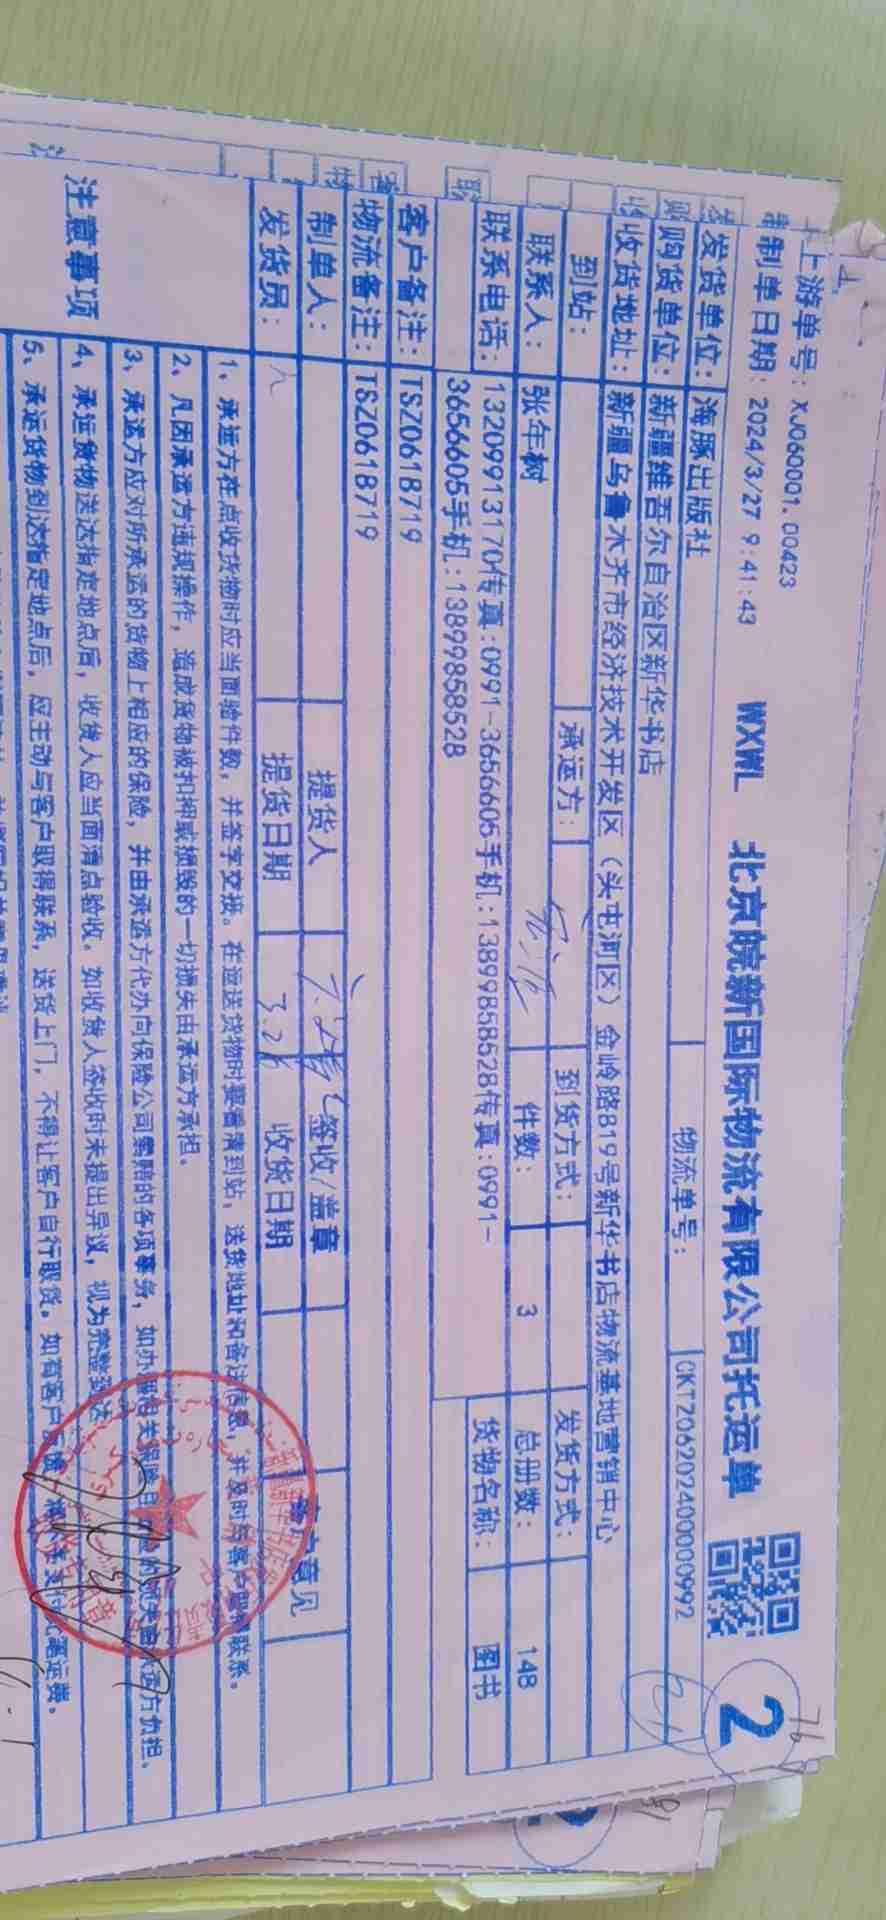 上游单号：XJ060001.00423
制单日期：2024/3/27 9:41:43
WXWL 北京皖新国际物流有限公司托运单
2
发货单位：海豚出版社 物流单号：CKTZ0620240000992
购货单位：新疆维吾尔自治区新华书店
收货地址：新疆乌鲁木齐市经济技术开发区（头屯河区）金岭路819号新华书店物流基地营销中心
到站： 承运方： 到货方式： 发货方式：
联系人：张年树 件数：3 总册数：148
联系电话：13209913170传真:0991-3656605手机:13899858528传真:0991-
3656605手机:13899858528
货物名称：图书
客户备注：TSZ0618719
物流备注：TSZ0618719
制单人： 提货人 签收/盖章
发货员： 提货日期 收货日期
意见
注意事项
1、承运方在点收货物时应当面验件数，并签字交接。在运送货物时要看清到站，送货地址和备注信息，并及时与客户取得联系。
2、凡因承运方违规操作，造成货物被扣押或损毁的一切损失由承运方承担。
3、承运方应对所承运的货物上相应的保险，并由承运方代办向保险公司索赔的各项事务，如办理相关保险
4、承运货物送达指定地点后，收货人应当面清点验收。如收货人签收时未提出异议，视为完整到达
5、承运货物到达指定地点后，应主动与客户取得联系，送货上门，不得让客户自行取货。如有客户